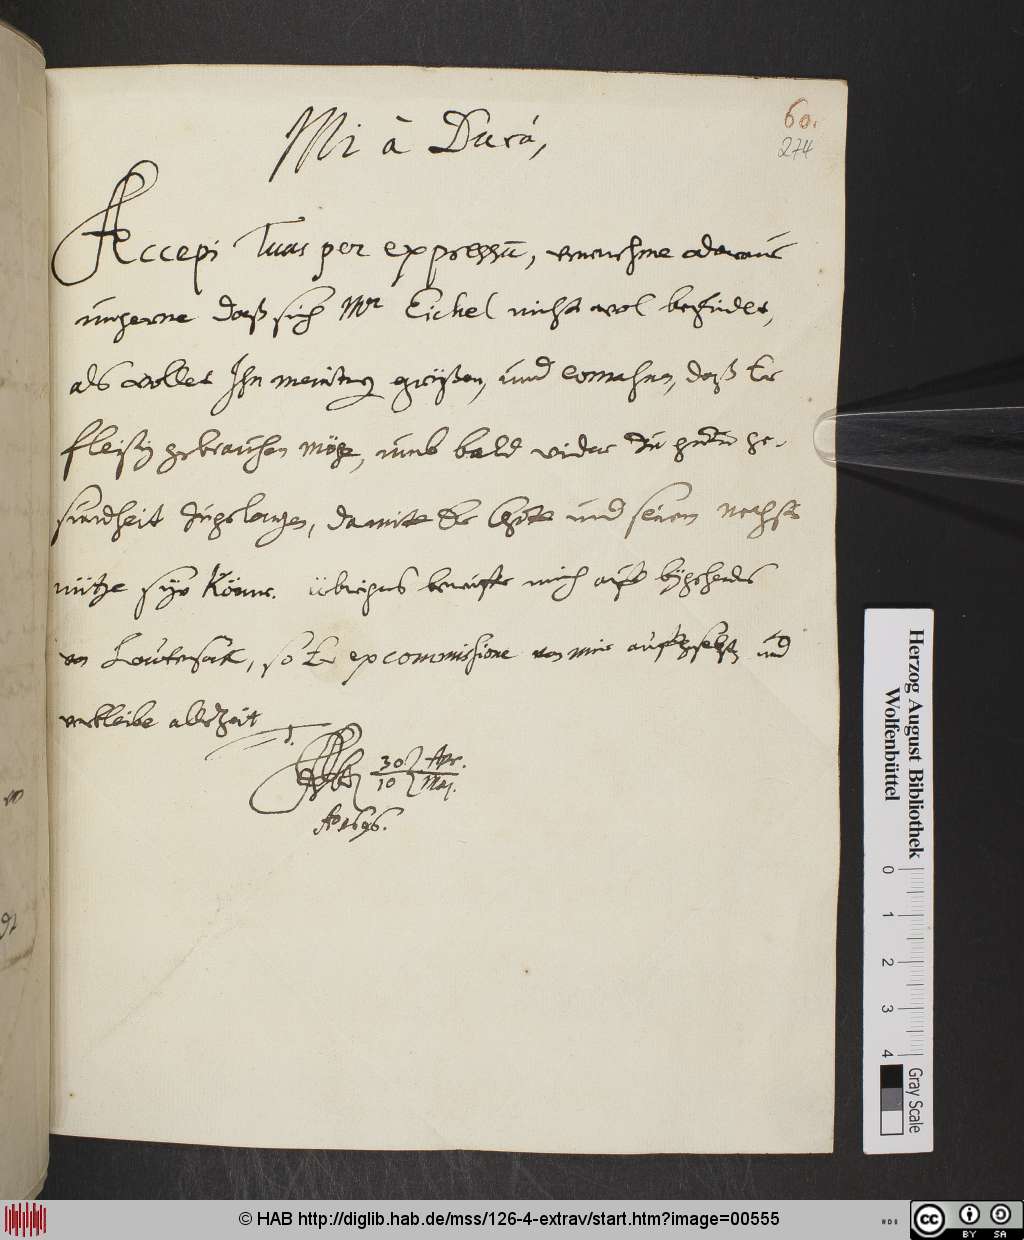 Mi à Dura,
60.
274
Accepi Tuas per expressū, vernehme daraus
ungerne daß sich Mr Eickel nicht wol befindet,
als wollet Ihn meinetweg grüßen, und ermahnen, daß Er
fleißig gebrauchen möge, umb bald wider zu guter ge-
sundheit zugelangen, damit Er Gott und seinem nechst
nütze sein Könne. übrigens beruffe mich auff bygehends
von Lautersack, so Er ex commissione von mir auffgesetzt und
verbleibe allezeit
T.
30 Apr.
10 Maj.
Ao 1656.
Herzog August Bibliothek
Wolfenbüttel
0 1 2 3 4
Gray Scale
© HAB http://diglib.hab.de/mss/126-4-extrav/start.htm?image=00555
cc BY SA